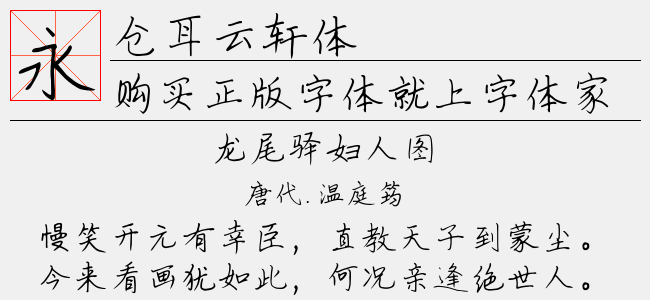 永
仓耳云轩体
购买正版字体就上字体家
龙尾驿妇人图
唐代.温庭筠
慢笑开元有幸臣，直教天子到蒙尘。
今来看画犹如此，何况亲逢绝世人。